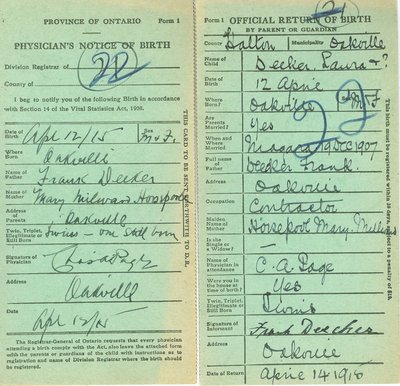 PROVINCE OF ONTARIO Form 1
PHYSICIAN'S NOTICE OF BIRTH
Division Registrar of
County of
I beg to notify you of the following Birth in accordance
with Section 14 of the Vital Statistics Act, 1908.
Date of Birth Apl 12/15 Sex M & F.
Where Born Oakville
Name of Father Frank Decker
Name of Mother Mary Milward
Address of Parents Oakville
Twin, Triplet, Illegitimate or Still Born Twins - one still born
Signature of Physician
Address Oakville
Date Apl 12/15
The Registrar-General of Ontario requests that every physician
attending a birth comply with the Act, also leave the attached form
with the parents or guardians of the child with instructions as to
registration and name of Division Registrar where the birth should
be registered.
THIS CARD TO BE SENT DIRECT TO D.R.
Form 1 OFFICIAL RETURN OF BIRTH
BY PARENT OR GUARDIAN
County Halton Municipality Oakville
Name of Child Decker Laura & ?
Date of Birth 12 April
Where Born? Oakville Sex M & F
Are Parents Married? Yes
When and Where Married 19 Dec 1907
Full name of Father Decker Frank.
Address Oakville
Occupation Contractor
Maiden Name of Mother Mary
Is she Single or a Widow?
Name of Physician in attendance C. A. Page
Were you in the house at time of birth? Yes
Twin, Triplet, Illegitimate or Still Born Twins
Signature of Informant Frank Decker
Address Oakville
Date of Return April 14 1915
This birth must be registered within 30 days, according to a penalty of $10.